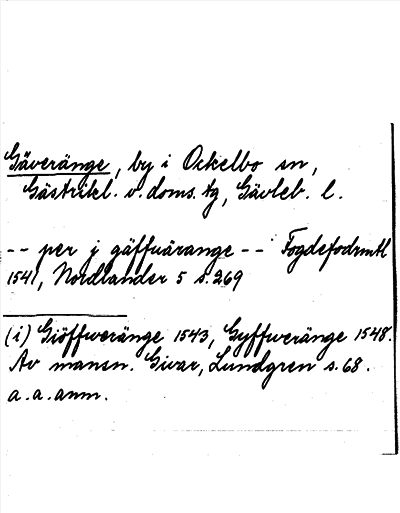 Gäveränge, by i Ockelbo sn,
Gästrikl. v. doms. tg, Gävleb. l.
-- per j gäffuärange -- Fogdefodrmtl
1541, Nordlander 5 s. 269
(i) Giöffweränge 1543, Gyffweränge 1548.
Av mansn. Givar, Lundgren s. 68.
a. a. anm.